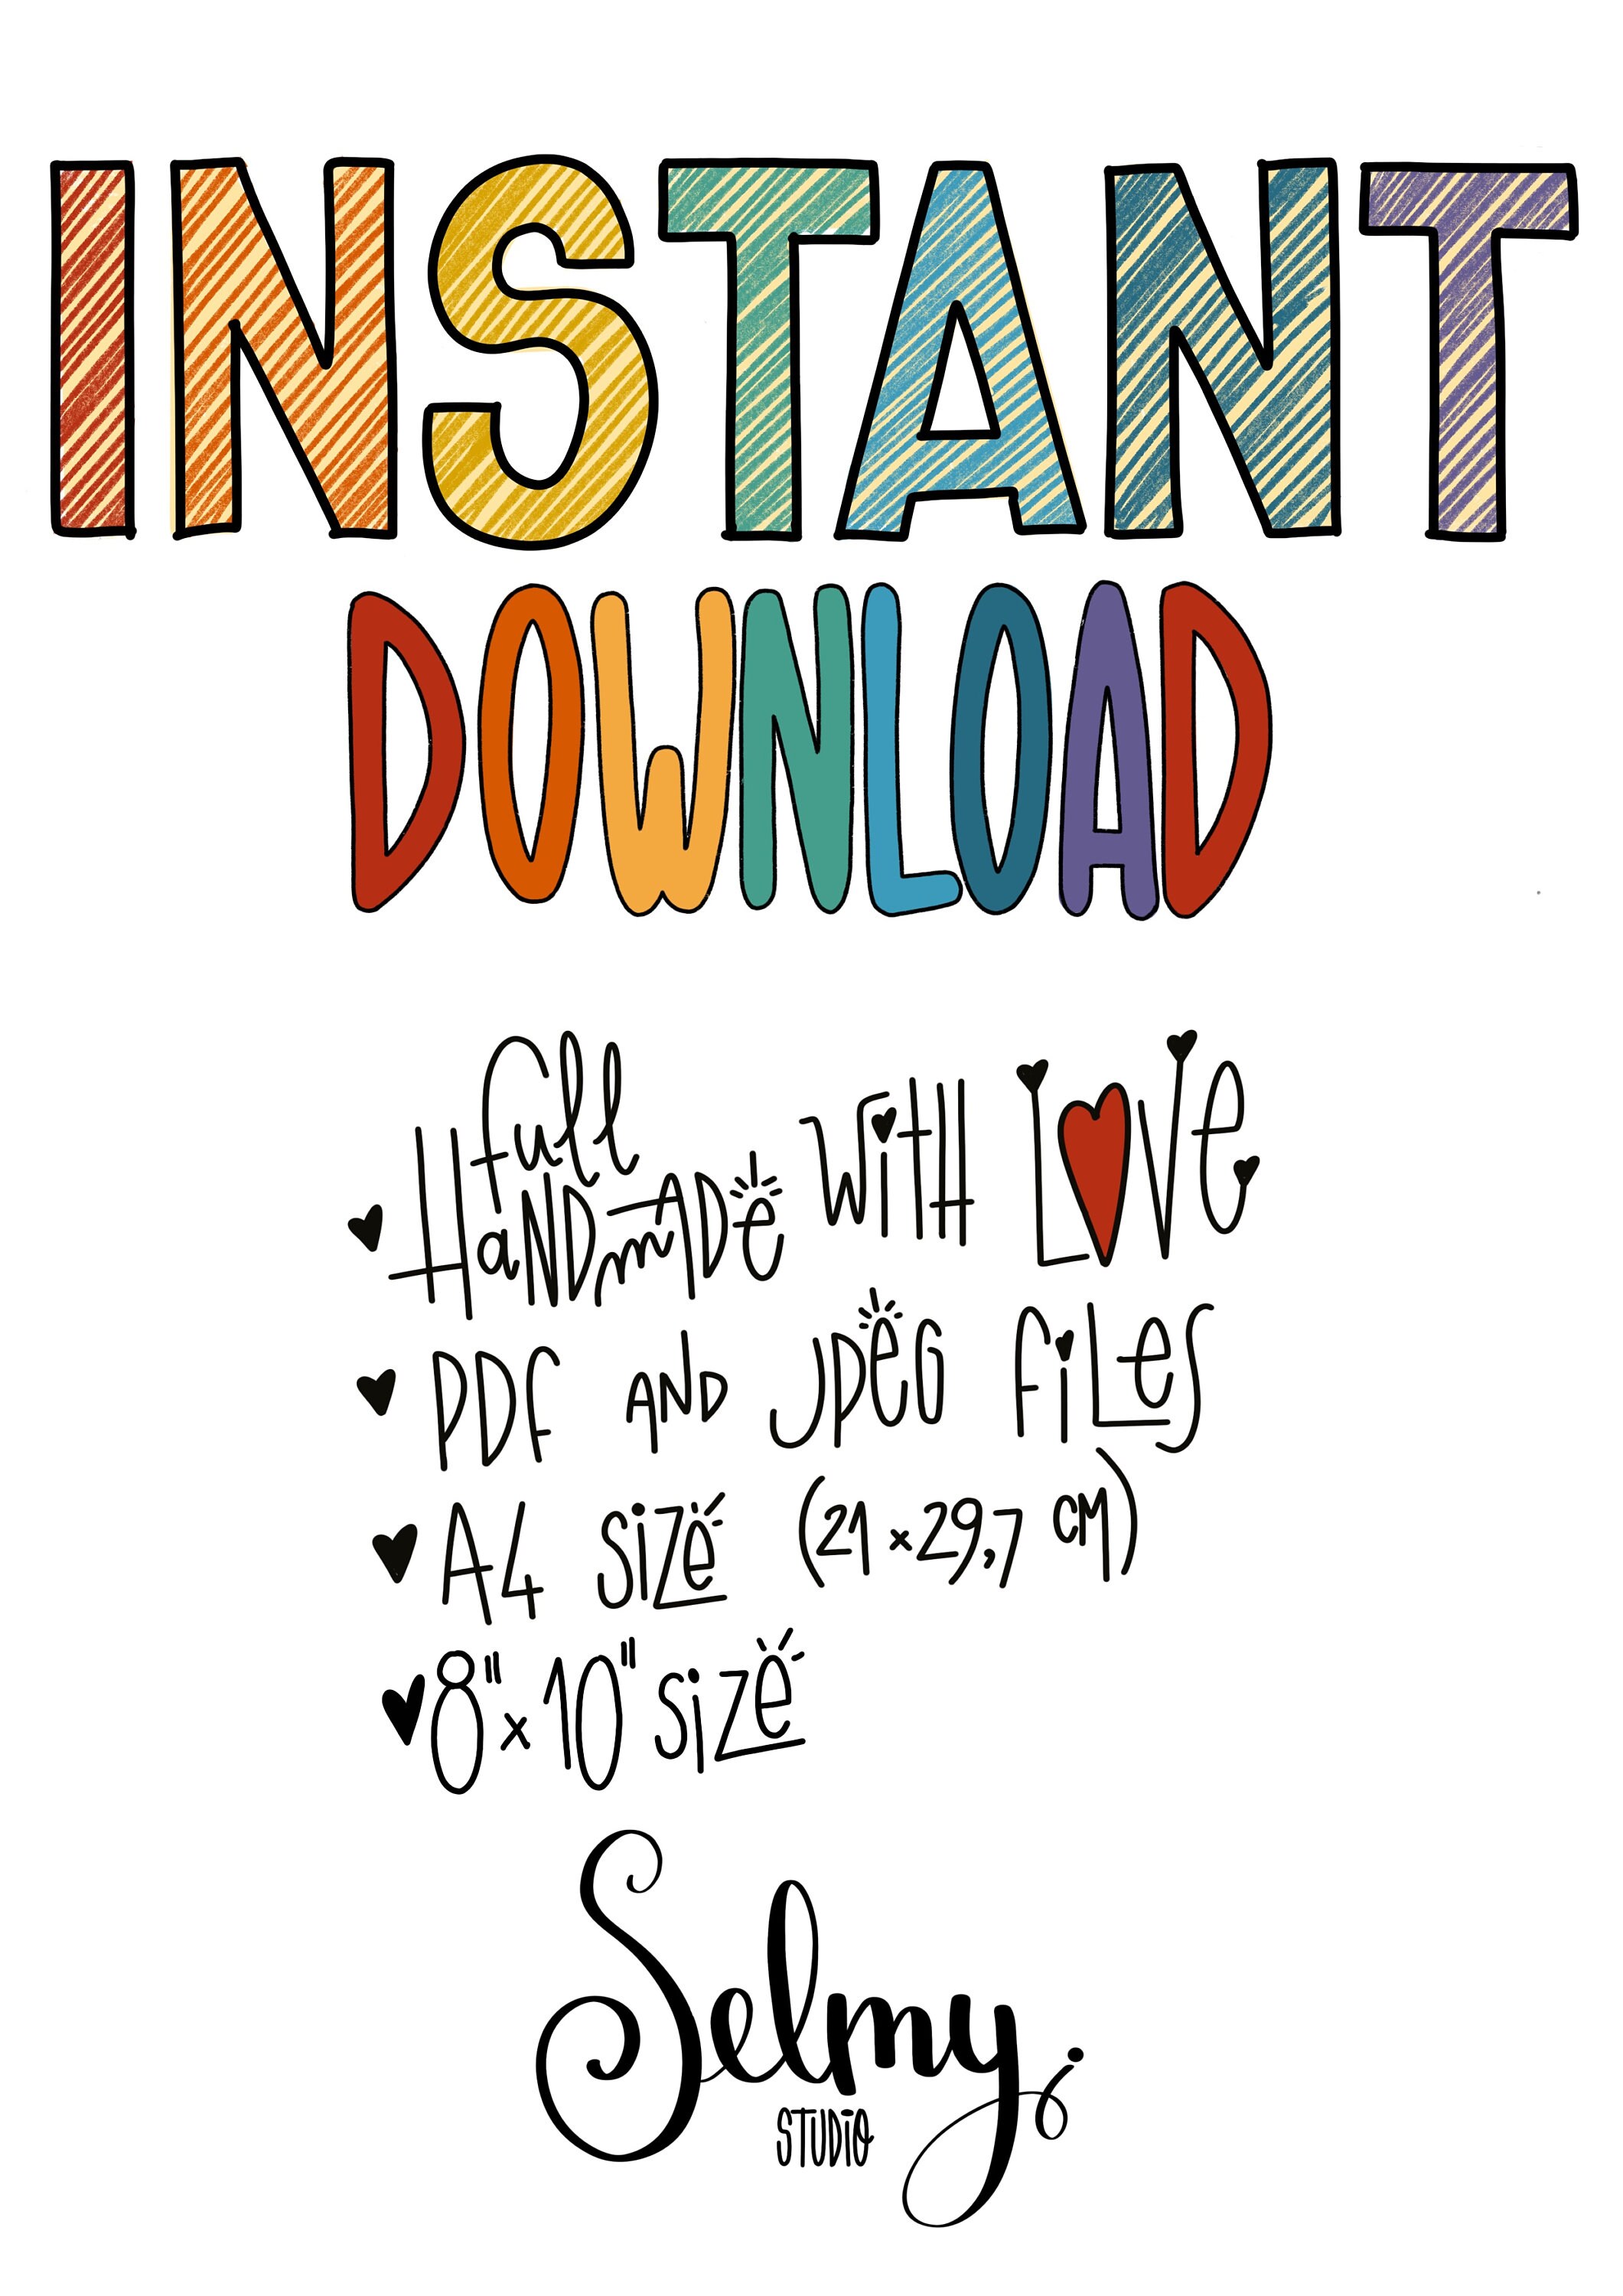 INSTANT
DOWNLOAD
fall
HaNDmADe WiTH LOVe
PDF AND JPEG FiLes
A4 SiZe (21 x 29,7 CM)
8" x 10" SiZe
Selmy
STUDIO